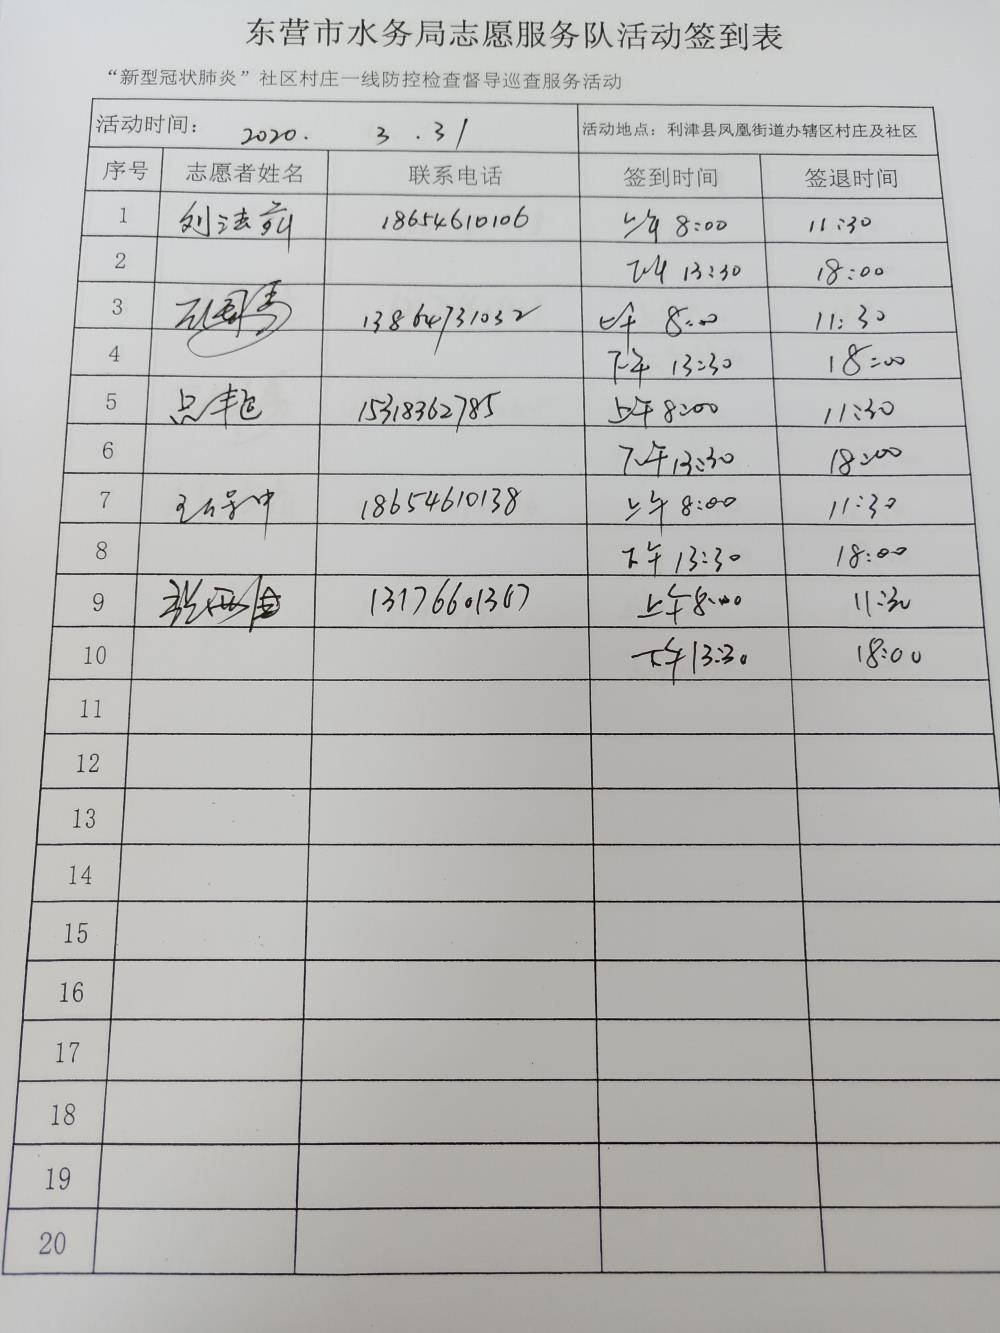 东营市水务局志愿服务队活动签到表
“新型冠状肺炎”社区村庄一线防控检查督导巡查服务活动
活动时间： 2020. 3.31 活动地点：利津县凤凰街道办辖区村庄及社区
序号 志愿者姓名 联系电话 签到时间 签退时间
1 刘 18654610106 上午 8:00 11:30
2 下午 13:30 18:00
3 13864731032 上午 8:00 11:30
4 下午 13:30 18:00
5 15318362785 上午 8:00 11:30
6 下午 13:30 18:00
7 王 18654610138 上午 8:00 11:30
8 下午 13:30 18:00
9 13176601367 上午 8:00 11:30
10 下午 13:30 18:00
11
12
13
14
15
16
17
18
19
20